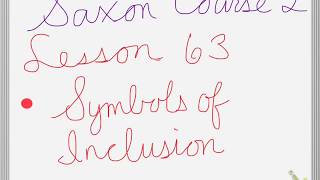 Saxon Course 2
Lesson 63
Symbols of
Inclusion